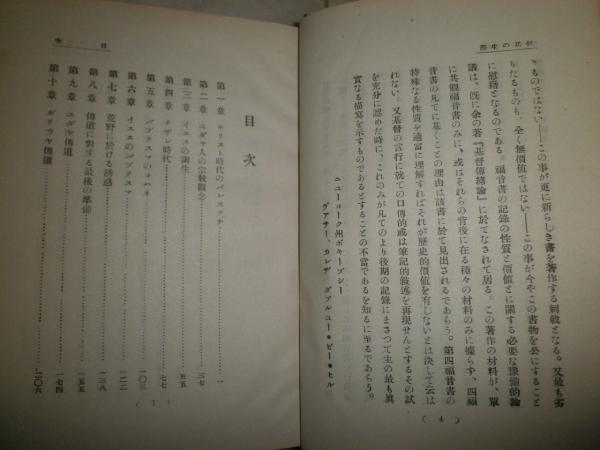 りものではない——この事が更に新らしき書を著作する刺戟となる。又最も劣
りたるものも、全く無價値ではない——この事が今やこの書物を公にすること
に慰藉となるのである。福音書の記錄の性質と價値とに關する必要な豫備的論
議は、既に余の著『基督傳緒論』に於てなされて居る。この著作の材料が、單
に共觀福音書のみに、或はそれらの背後に在る種々の材料のみに據らず、四福
音書の凡てに基くことの理由は該書に於て見出されるであらう。第四福音書の
特殊なる性質を適當に理解すればそれが歷史的價値を有しないとは決して云は
れない。又基督の言行に就ての口傳的或は筆記的敍述を再現せんとするその試
を充分に認めた時に、これのみが凡てのより後期の記錄にまさつて主の最も眞
實なる描寫を示すものであるとすることの不當であるを知るに至るであらう。
ニューヨーク州ポキープシー
ヴアサー、カレヂ ダブルユー・ビー・ヒル
( 4 )
目次
目次
第一章 キリスト時代のパレスチナ 一
第二章 ユダヤ人の宗敎觀念 三七
第三章 イエスの誕生 五五
第四章 ナザレ時代 七七
第五章 バプテスマのヨハネ 一〇三
第六章 イエスのバプテスマ 一二二
第七章 荒野に於ける誘惑 一三八
第八章 傳道に對する最後の準備 一五五
第九章 ユダヤ傳道 一七四
第十章 ガリラヤ傳道 二〇六
( 1 )